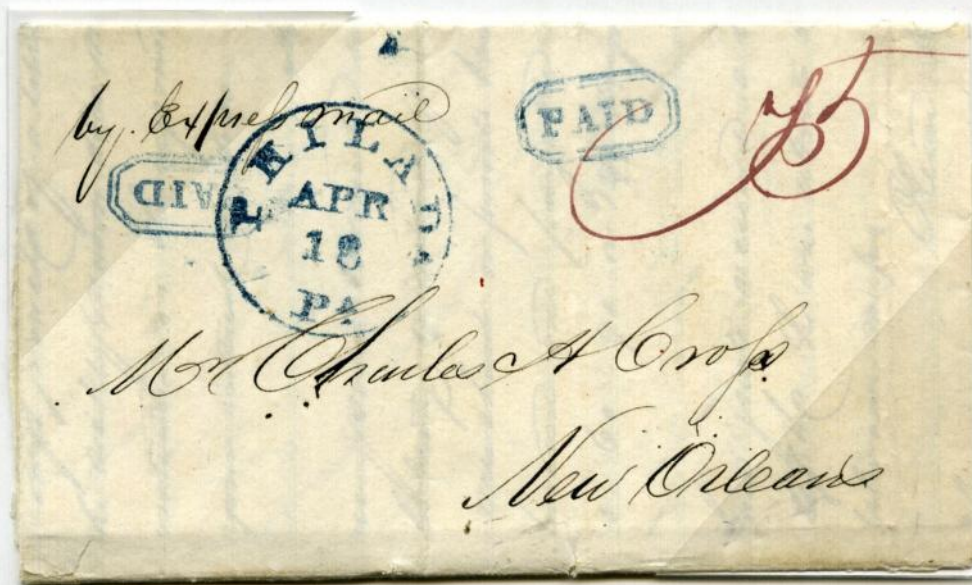 by. Express mail
PAID
75
PAID
PHILADA
APR
18
PA
Mr Charles H Cross
New Orleans